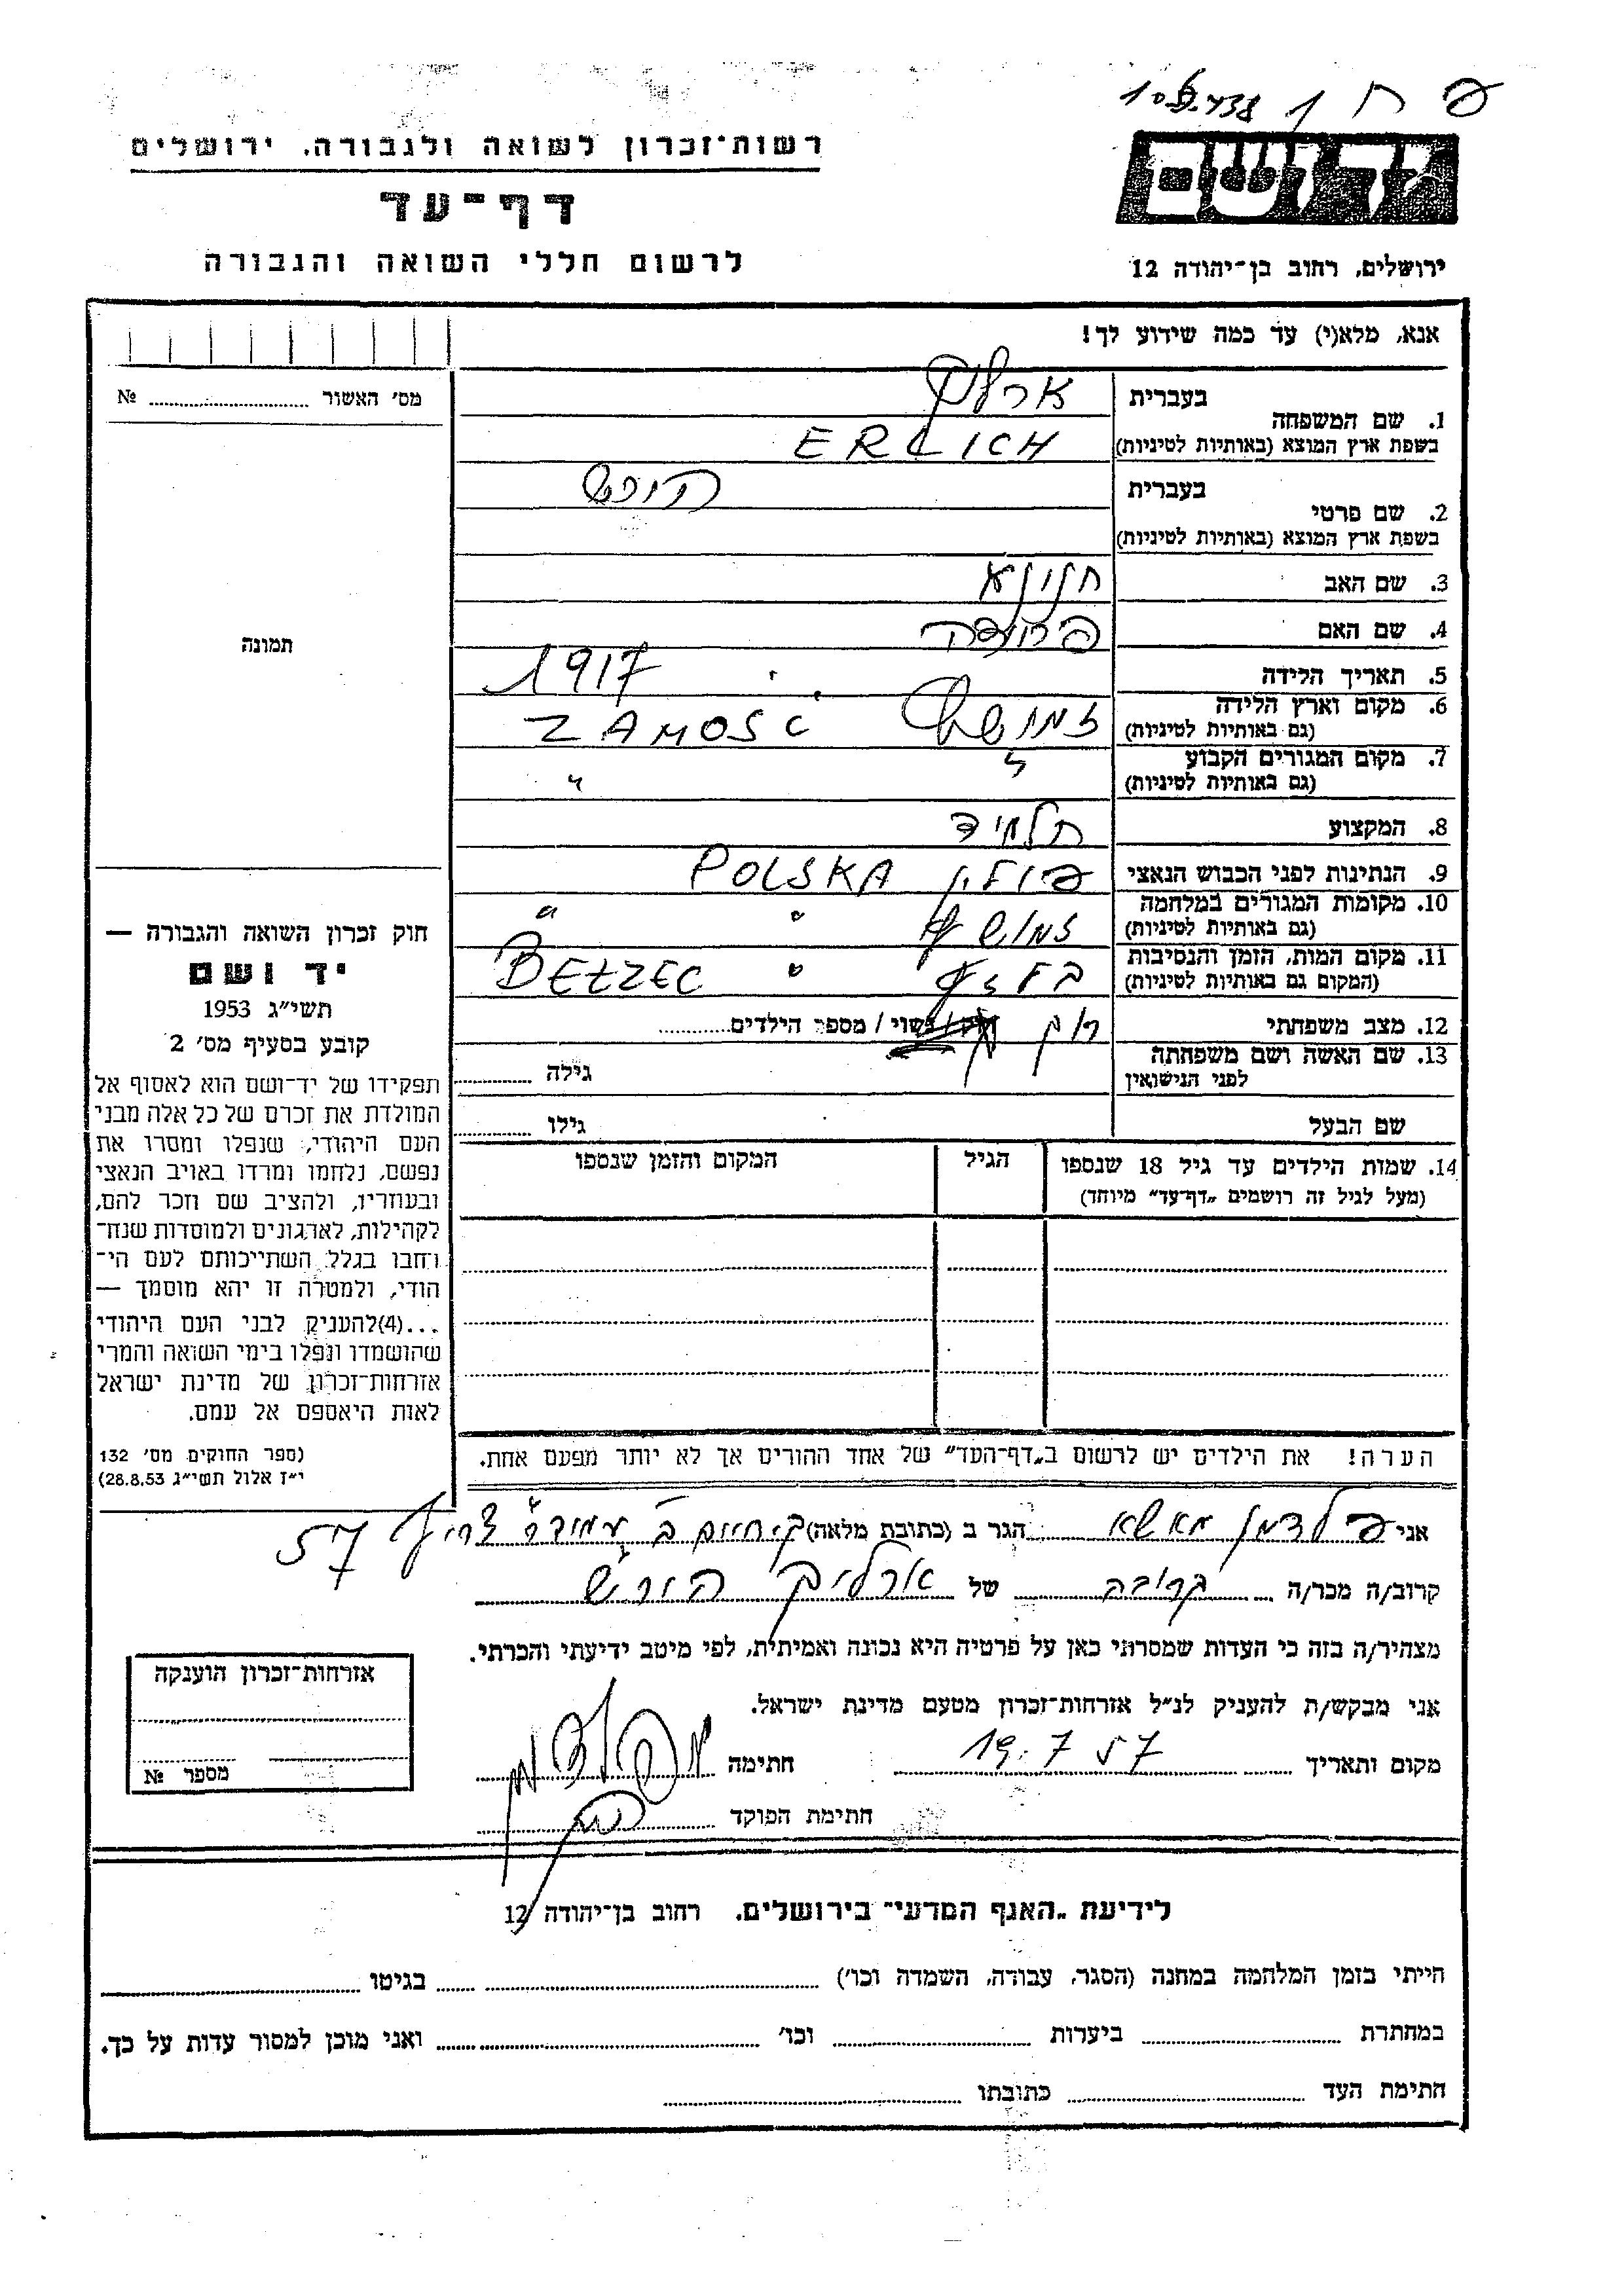 רשות־זכרון לשואה ולגבורה, ירושלים
דף־עד
לרשום חללי השואה והגבורה
יד ושם
ירושלים, רחוב בן־יהודה 12
אנא, מלא(י) עד כמה שידוע לך!
מס׳ האשור № ....................
תמונה
1. שם המשפחה
בעברית
ארליך
בשפת ארץ המוצא (באותיות לטיניות)
ERLICH
2. שם פרטי
בעברית
הירש
בשפת ארץ המוצא (באותיות לטיניות)
3. שם האב
4. שם האם
5. תאריך הלידה 1917
6. מקום וארץ הלידה
(גם באותיות לטיניות)
זמושץ ZAMOSC
7. מקום המגורים הקבוע
(גם באותיות לטיניות)
" "
8. המקצוע תלמיד
9. הנתינות לפני הכבוש הנאצי פולין POLSKA
10. מקומות המגורים במלחמה
(גם באותיות לטיניות)
זמושץ " "
11. מקום המות, הזמן והנסיבות
(המקום גם באותיות לטיניות)
בלזץ " BEŁZEC
12. מצב משפחתי רוק / נשוי / מספר הילדים..........
13. שם האשה ושם משפחתה
לפני הנישואין
גילה ..........
שם הבעל גילו ..........
14. שמות הילדים עד גיל 18 שנספו
(מעל לגיל זה רושמים „דף־עד” מיוחד)
הגיל
המקום והזמן שנספו
חוק זכרון השואה והגבורה —
יד ושם
תשי״ג 1953
קובע בסעיף מס׳ 2
תפקידו של יד־ושם הוא לאסוף אל
המולדת את זכרם של כל אלה מבני
העם היהודי, שנפלו ומסרו את
נפשם, נלחמו ומרדו באויב הנאצי
ובעוזריו, ולהציב שם וזכר להם,
לקהילות, לארגונים ולמוסדות שנח־
רחבו בגלל השתייכותם לעם הי־
הודי, ולמטרה זו יהא מוסמך —
...(4) להעניק לבני העם היהודי
שהושמדו ונפלו בימי השואה והמרי
אזרחות־זכרון של מדינת ישראל
לאות היאספם אל עמם.
(ספר החוקים מס׳ 132
י״ז אלול תשי״ג 28.8.53)
הערה! את הילדים יש לרשום ב„דף־העד” של אחד ההורים אך לא יותר מפעם אחת.
אני פלדמן מאשא הגר ב (כתובת מלאה) ק. חיים ב צריף 57
קרוב/ה מכר/ה קרובה של ארליך הירש
מצהיר/ה בזה כי העדות שמסרתי כאן על פרטיה היא נכונה ואמיתית, לפי מיטב ידיעתי והכרתי.
אני מבקש/ת להעניק לנ״ל אזרחות־זכרון מטעם מדינת ישראל.
מקום ותאריך 19.7 57 חתימה מ פלדמן
חתימת הפוקד
אזרחות־זכרון הוענקה
מספר №
לידיעת „האגף המדעי” בירושלים, רחוב בן־יהודה 12
חייתי בזמן המלחמה במחנה (הסגר, עבודה, השמדה וכו׳) .................... בגיטו ....................
במחתרת .................... ביערות .................... וכו׳ .................... ואני מוכן למסור עדות על כך.
חתימת העד .................... כתובתו ....................